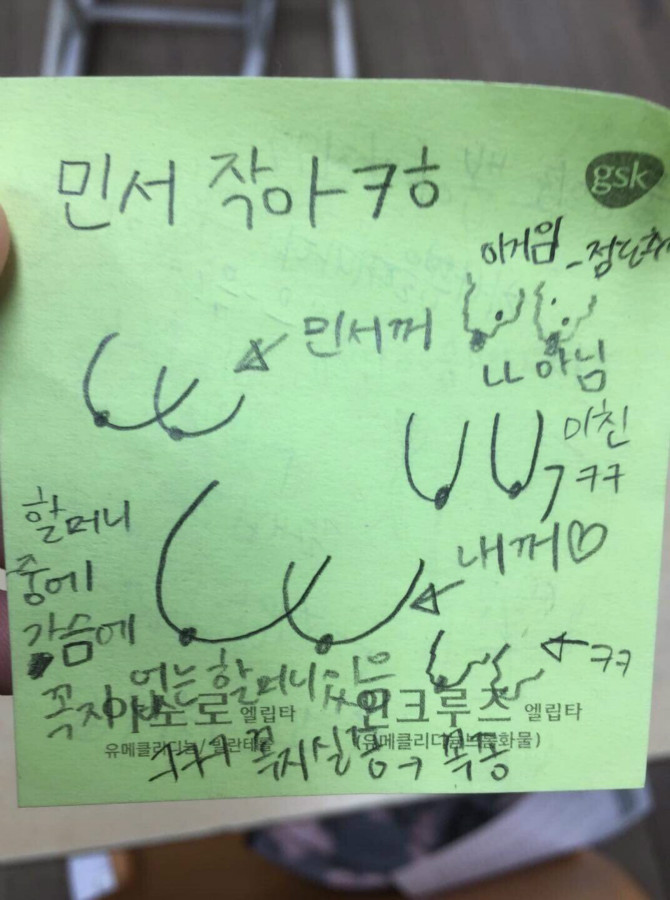 민서 작아 ㅋㅎ
gsk
이거임
민서꺼
ㄴㄴ 아님
미친
ㅋㅋ
내꺼♡
할머니
중에
가슴에
ㅋㅋ
꼭지
없는 할머니 있음
아노로 엘립타
인크루즈 엘립타
유메클리디늄/빌란테롤
(유메클리디늄브롬화물)
ㅋㅋㅋ 꼭지실종